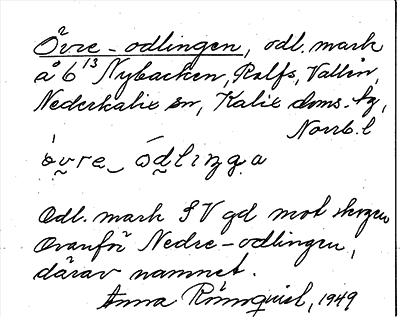 Övre-odlingen, odl. mark
å 6¹³ Nybacken, Rolfs, Vallén,
Nederkalix sn, Kalix doms. tg,
Norrb. l
övre ódlinga
Odl. mark SV gd mot skogen
Ovanför Nedre-odlingen,
därav namnet.
Anna Rönnquist, 1949